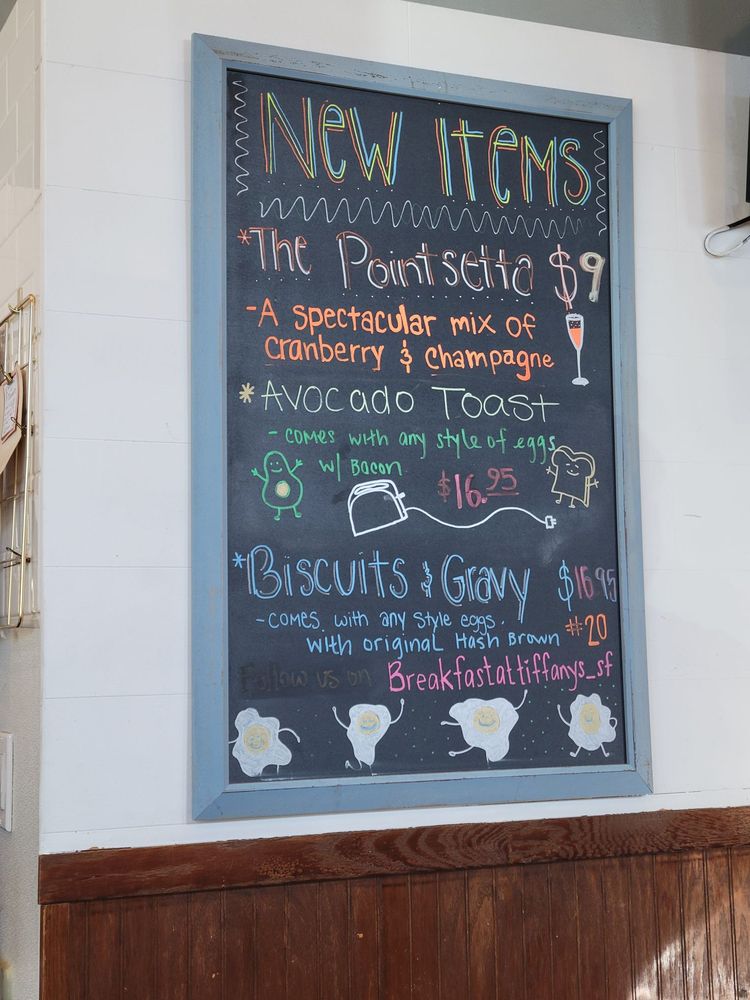 New Items
*The Pointsetta $9
-A spectacular mix of
cranberry & Champagne
*Avocado Toast
- comes with any style of eggs
w/ Bacon
$16.95
*Biscuits & Gravy $16.95
-comes with any style eggs.
with original Hash Brown #20
Follow us on Breakfastattiffanys_sf